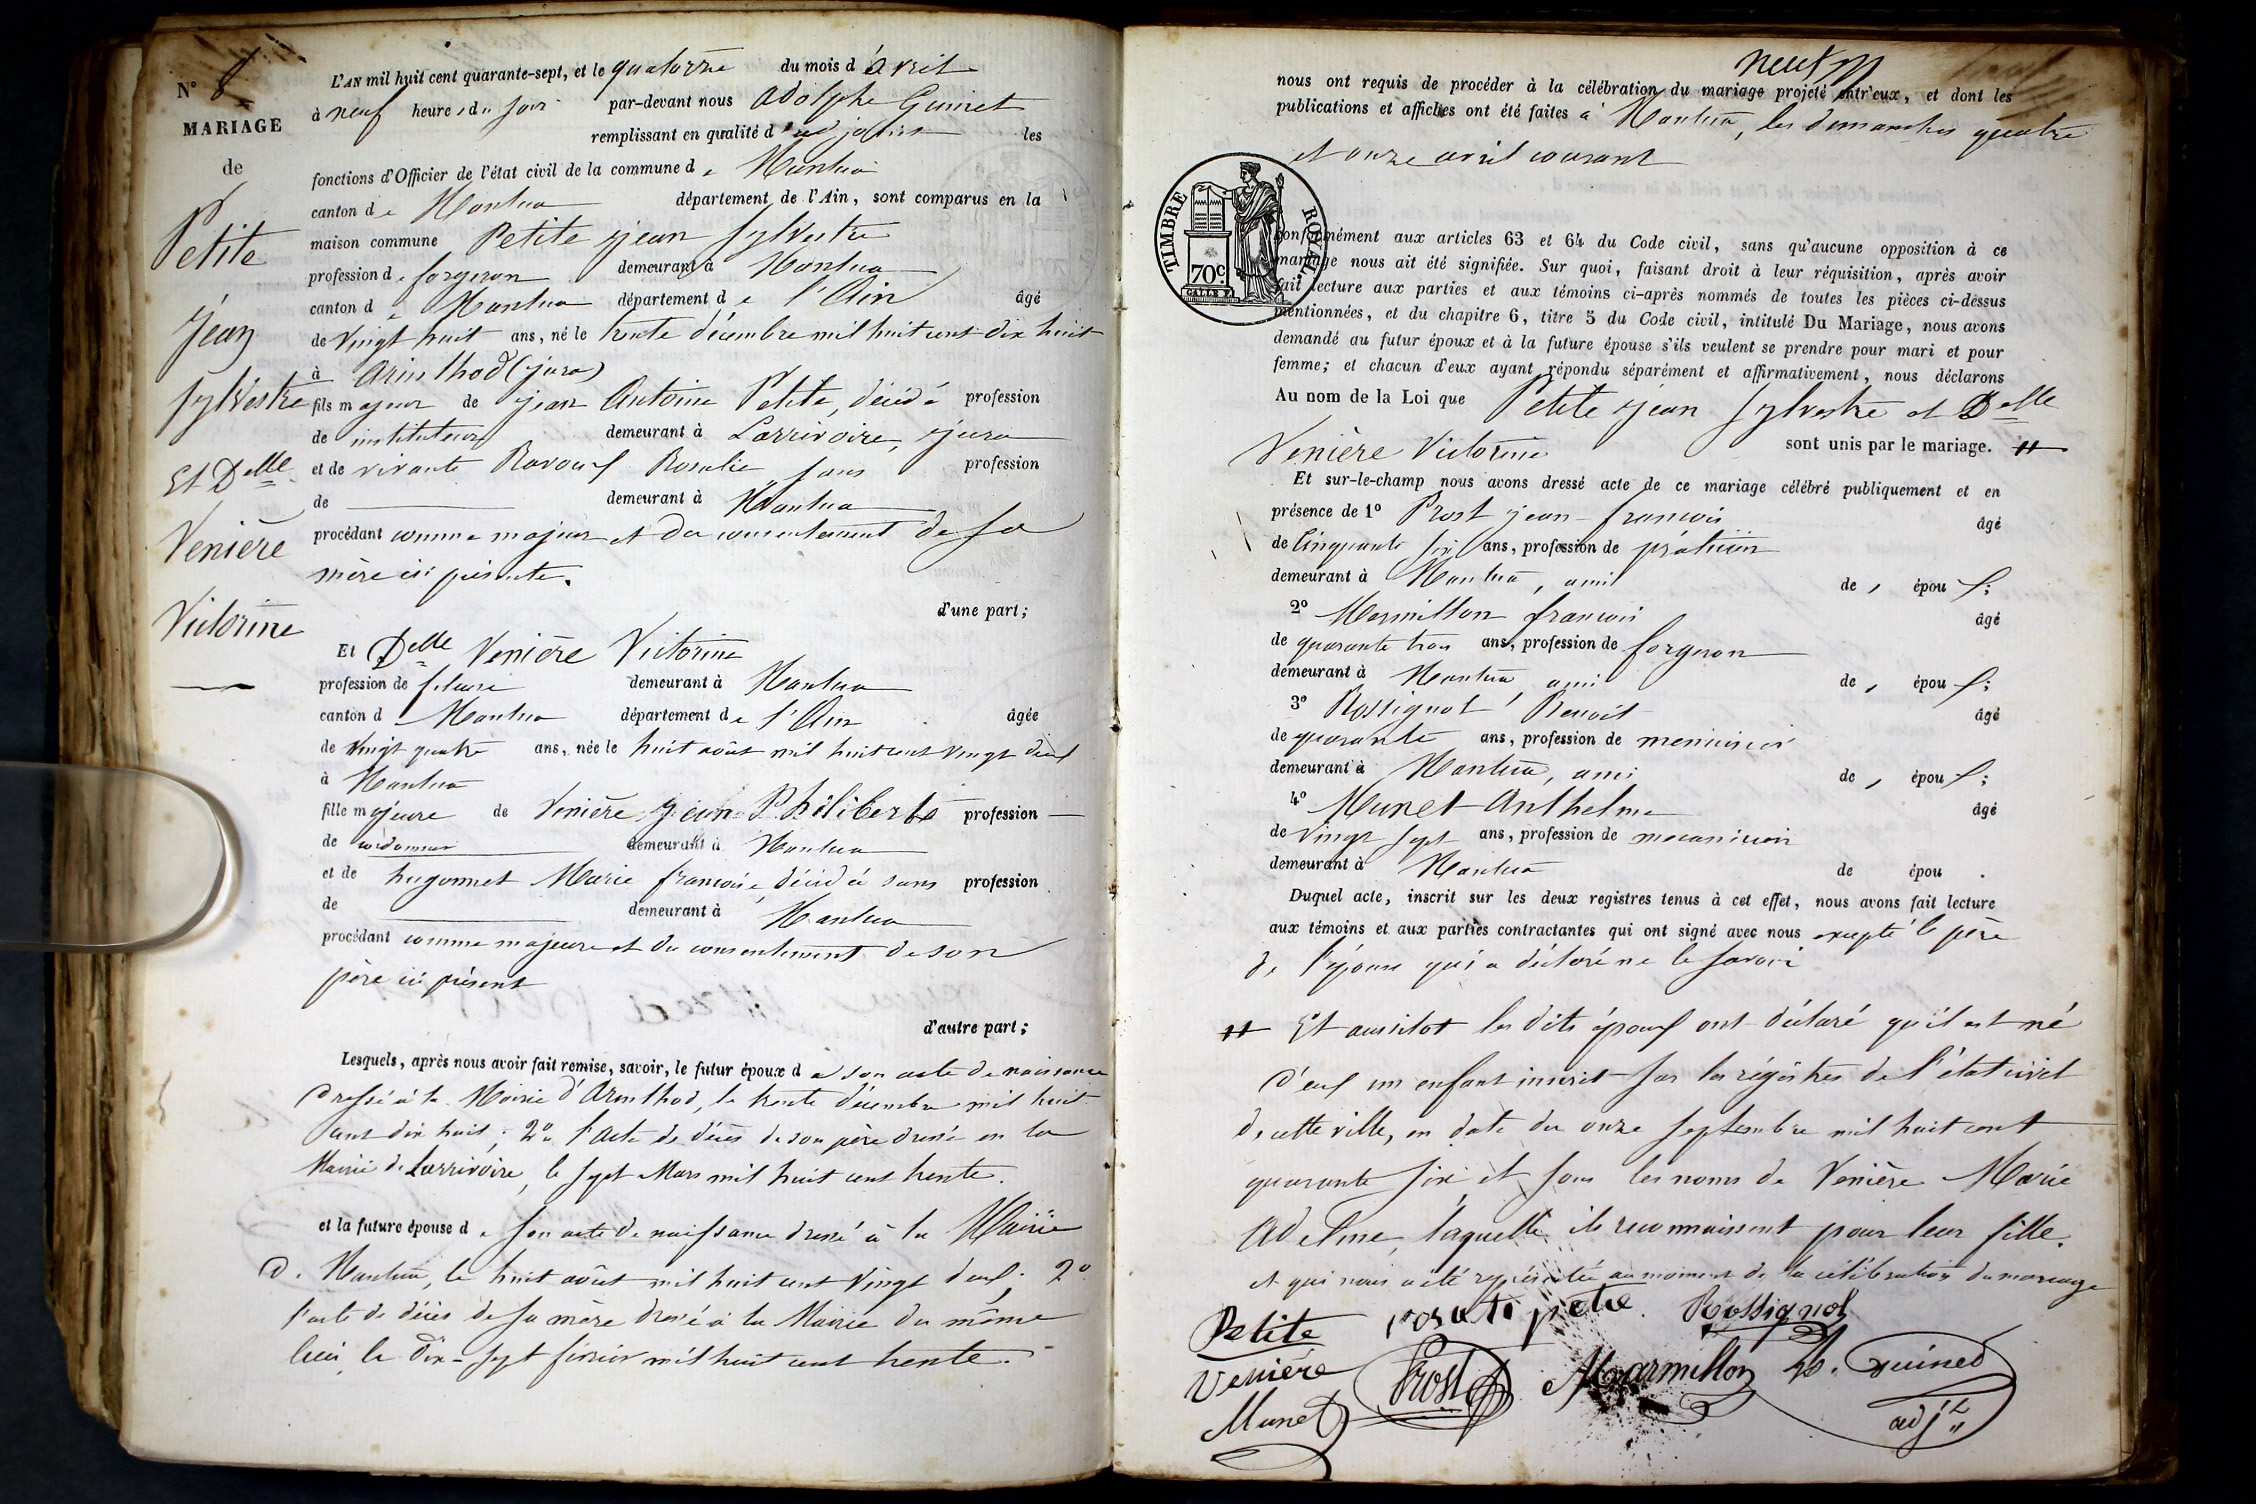 N° 8
MARIAGE
de
Petite
jean
Sylvestre
Et Delle
Venière
Victorine
L'AN mil huit cent quarante-sept, et le quatorze du mois d'avril
à neuf heures du soir par-devant nous Adolphe Guinet
remplissant en qualité d'adjoint les
fonctions d'Officier de l'état civil de la commune de Nantua
canton de Nantua département de l'Ain, sont comparus en la
maison commune Petite jean Sylvestre
profession de forgeron demeurant à Nantua
canton de Nantua département de l'Ain âgé
de vingt huit ans, né le trente décembre mil huit cent dix huit
à Arinthod (jura)
fils majeur de jean Antoine Petite, décédé profession
de instituteur demeurant à Larrivoire, jura
et de vivante Rosalie sans profession
de demeurant à Nantua
procédant comme majeur et du consentement de sa
mère ici présente.
d'une part;
Et Delle Venière Victorine
profession de demeurant à Nantua
canton de Nantua département de l'Ain âgée
de vingt quatre ans, née le huit août mil huit cent vingt deux
à Nantua
fille majeure de Venière jean Philiberte profession
de cordonnier demeurant à Nantua
et de hugonnet Marie françoise décédée sans profession
de demeurant à Nantua
procédant comme majeure et du consentement de son
père ici présent
d'autre part;
Lesquels, après nous avoir fait remise, savoir, le futur époux de son acte de naissance
dressé à la Mairie d'Arinthod, le trente décembre mil huit
cent dix huit; 2° l'acte de décès de son père dressé en la
Mairie de Larrivoire, le sept Mars mil huit cent trente.
et la future épouse de son acte de naissance dressé à la Mairie
de Nantua, le huit août mil huit cent vingt deux; 2°
l'acte de décès de sa mère dressé à la Mairie du même
lieu le dix-sept février mil huit cent trente.
neuf
nous ont requis de procéder à la célébration du mariage projeté entr'eux, et dont les
publications et affiches ont été faites à Nantua, les dimanches quatre
et onze avril courant
TIMBRE ROYAL
70c
conformément aux articles 63 et 64 du Code civil, sans qu'aucune opposition à ce
mariage nous ait été signifiée. Sur quoi, faisant droit à leur réquisition, après avoir
fait lecture aux parties et aux témoins ci-après nommés de toutes les pièces ci-dessus
mentionnées, et du chapitre 6, titre 5 du Code civil, intitulé Du Mariage, nous avons
demandé au futur époux et à la future épouse s'ils veulent se prendre pour mari et pour
femme; et chacun d'eux ayant répondu séparément et affirmativement, nous déclarons
Au nom de la Loi que Petite jean Sylvestre et Delle
Venière Victorine sont unis par le mariage. #
Et sur-le-champ nous avons dressé acte de ce mariage célébré publiquement et en
présence de 1° Prost jean-françois âgé
de Cinquante six ans, profession de praticien
demeurant à Nantua, ami de, époux;
2° Marmillon françois âgé
de quarante trois ans, profession de forgeron
demeurant à Nantua ami de, époux;
3° Rossignol Benoit âgé
de quarante ans, profession de menuisier
demeurant à Nantua, ami de, époux;
4° Munet Anthelme âgé
de vingt sept ans, profession de mecanicien
demeurant à Nantua de épou .
Duquel acte, inscrit sur les deux registres tenus à cet effet, nous avons fait lecture
aux témoins et aux parties contractantes qui ont signé avec nous excepté le père
de l'épouse qui a déclaré ne le savoir
# Et aussitot les dits époux ont déclaré qu'il est né
d'eux un enfant inscrit sur les régistres de l'état civil
de cette ville, en date du onze septembre mil huit cent
quarante six et sous les noms de Venière Marie
Adeline, laquelle ils reconnaissent pour leur fille.
et qui nous a été représentée au moment de la célébration du mariage
Petite Rossignol
Venière Prost Marmillon Guinet
Munet adjt